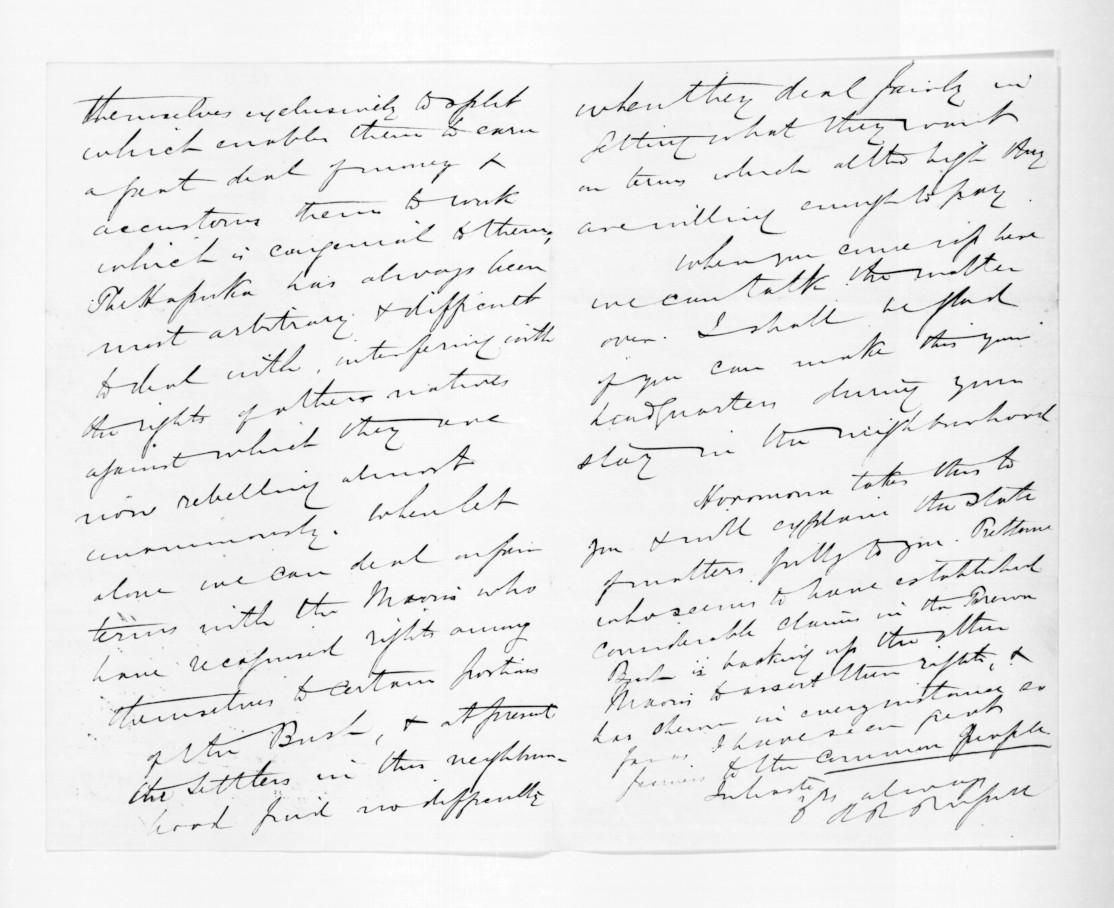 themselves exclusively to split
which enables them to earn
a great deal of money &
accustoms them to work
which is congenial to them,
The Hapuka has always been
most arbitrary & difficult
to deal with, interfering with
the rights of others natives
against which they are
now rebelling almost
unanimously. When let
alone we can deal on fair
terms with the Maoris who
have recognised rights among
themselves to certain portions
of the Bush, & at present
the settlers in this neighbour-
hood find no difficulty
when they deal fairly in
getting what they want
on terms which altho high they
are willing enough to pay.
When you come up here
we can talk the matter
over. I shall be glad
if you can make this your
headquarters during your
stay in the neighbourhood
Horomona takes this to
you & will explain the state
of matters fully to you.
who seems to have established
considerable claims in the
Bush is backing up the other
Maoris to assert their rights, &
has shewn in every instance so
far as I have seen great
fairness to the common people
In haste
Yrs always
H R Russell